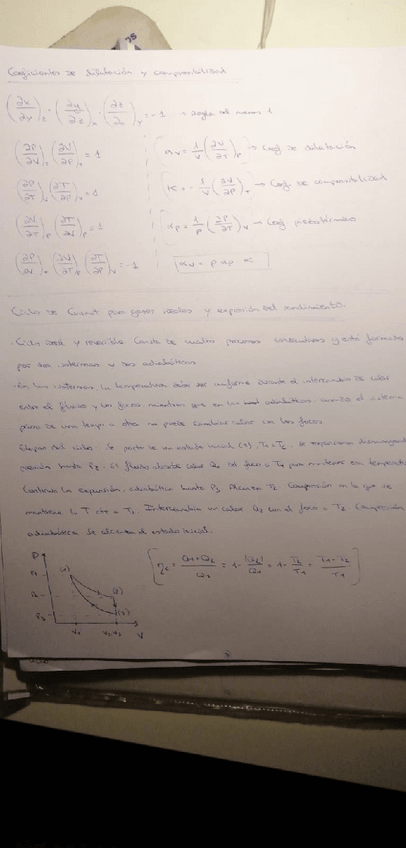 Coeficientes de dilatación y compresibilidad
(∂x/∂y)z · (∂y/∂z)x · (∂z/∂x)y = -1 → regla del menos 1
(∂P/∂V)T (∂V/∂P)T = 1
αV = 1/V (∂V/∂T)P → Coef de dilatación
(∂P/∂T)V (∂T/∂P)V = 1
K = - 1/V (∂V/∂P)T → Coef. de compresibilidad
(∂V/∂T)P (∂T/∂V)P = 1
αP = 1/P (∂P/∂T)V → Coef piezotérmico
(∂P/∂V)T (∂V/∂T)P (∂T/∂P)V = -1
αV = P αP · K
Ciclo de Carnot para gases ideales y expresión del rendimiento
· Ciclo ideal y reversible. Consta de cuatro procesos consecutivos y está formado
por dos isotermas y dos adiabáticas.
· En las isotermas la temperatura debe ser uniforme durante el intercambio de calor
entre el fluido y los focos, mientras que en las adiabáticas, cuando el sistema
pasa de una temp a otra no puede cambiar calor con los focos
Etapas del ciclo: Se parte de un estado inicial (1), T1 = Te. se expansiona disminuyendo
presión hasta P2. El fluido absorbe calor Q1 del foco = T1 para mantener su temperatura
Continúa la expansión adiabática hasta P3. Alcanza T2. Compresión en la que se
mantiene la T cte = T2. Intercambia un calor Q2 con el foco = T2. Compresión
adiabática. Se alcanza el estado inicial.
ηc = Q1+Q2/Q1 = 1 - |Q2|/Q1 = 1 - T2/T1 = T1-T2/T1
P
P1
(1)
(2)
(3)
V